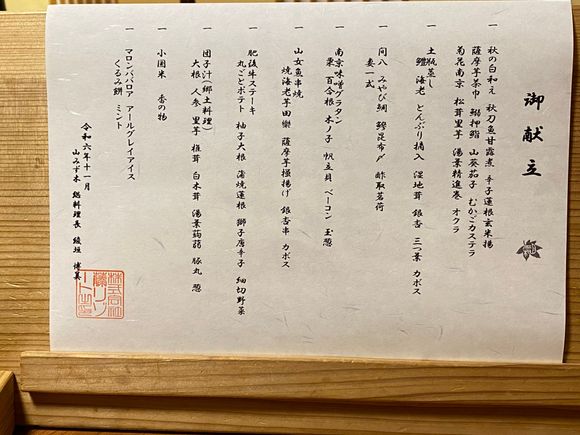 御献立
一 秋の白和え 秋刀魚甘露煮 辛子蓮根玄米揚
薩摩芋茶巾 鰯押鮨 山葵茄子 むかごカステラ
菊花南京 松茸里芋 湯葉精進巻 オクラ
一 土瓶蒸し
鱧 海老 どんぶり摘入 湿地茸 銀杏 三つ葉 カボス
一 間八 みやび鯛 鰹昆布〆 酢取茗荷
妻一式
一 南京味噌グラタン
栗 百合根 木ノ子 帆立貝 ベーコン 玉葱
一 山女魚串焼
焼海老芋田樂 薩摩芋挽揚げ 銀杏串 カボス
一 肥後牛ステーキ
丸ごとポテト 柚子大根 蒲焼蓮根 獅子唐辛子 細切野菜
一 団子汁(郷土料理)
大根 人参 里芋 椎茸 白木茸 湯葉蒟蒻 豚丸 葱
一 小国米 香の物
一 マロンババロア アールグレイアイス
くるみ餅 ミント
令和六年十一月
山みず木 総料理長 綾垣 博美
株式会社